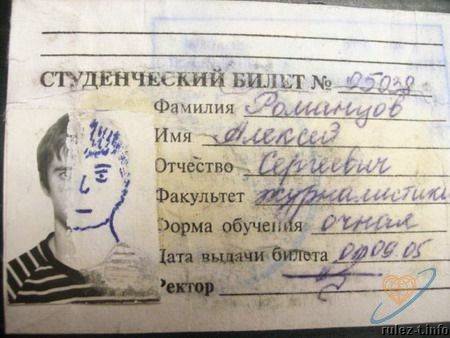 СТУДЕНЧЕСКИЙ БИЛЕТ № 95038
Фамилия Романцов
Имя Алексей
Отчество Сергеевич
Факультет журналистики
Форма обучения очная
Дата выдачи билета 01.09.05
Ректор
rulez-t.info